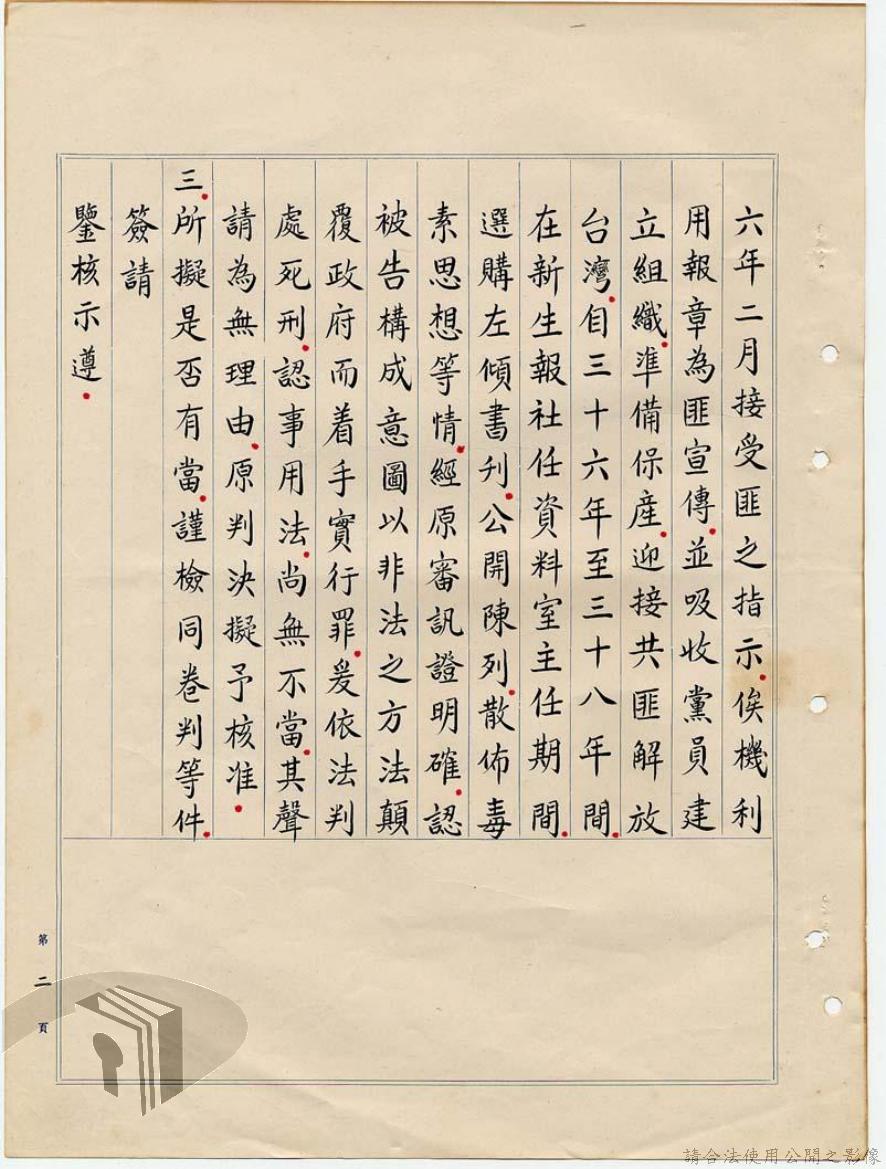 六年二月接受匪之指示.俟機利
用報章為匪宣傳.並吸收黨員建
立組織.準備保產.迎接共匪解放
台灣.自三十六年至三十八年間.
在新生報社任資料室主任期間.
選購左傾書刋.公開陳列.散佈毒
素思想等情.經原審訊證明確.認
被告構成意圖以非法之方法顛
覆政府而着手實行罪.爰依法判
處死刑.認事用法.尚無不當.其聲
請為無理由.原判決擬予核准.
三.所擬是否有當.謹檢同卷判等件.
簽請
鑒核示遵.
第二頁
請合法使用公開之影像